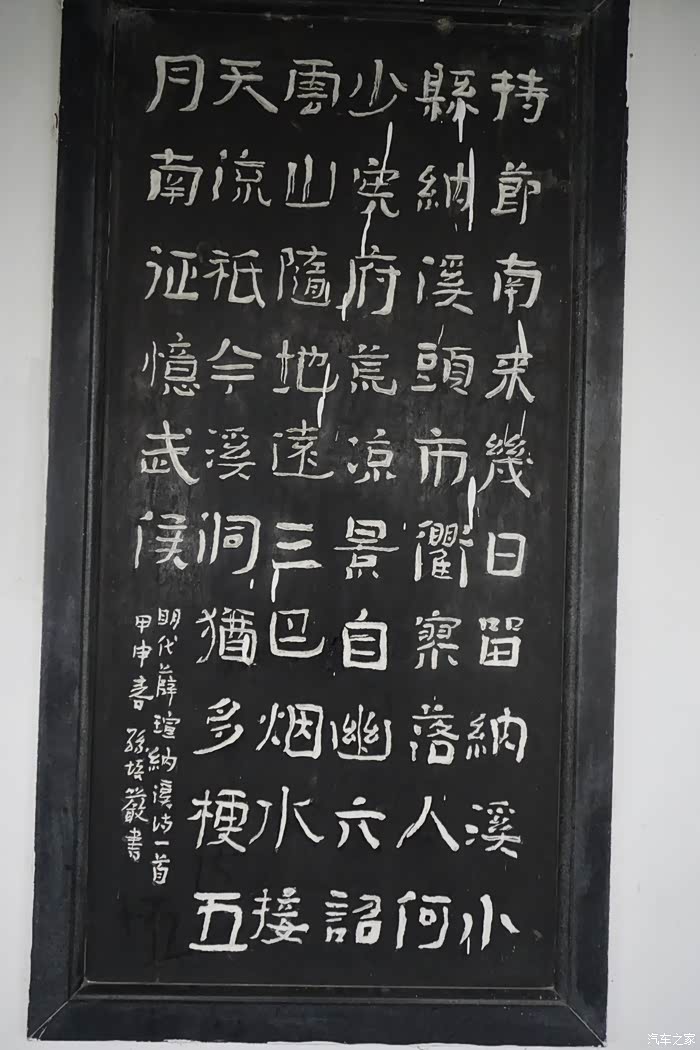 持節南来幾日留納溪小
縣納溪頭市衢寥落人何
少憲府荒凉景自幽六詔
雲山隨地遠三巴烟水接
天流祇今溪洞猶多梗五
月南征憶武侯
明代薛瑄納溪诗一首
甲申春 孫培嚴書
汽车之家